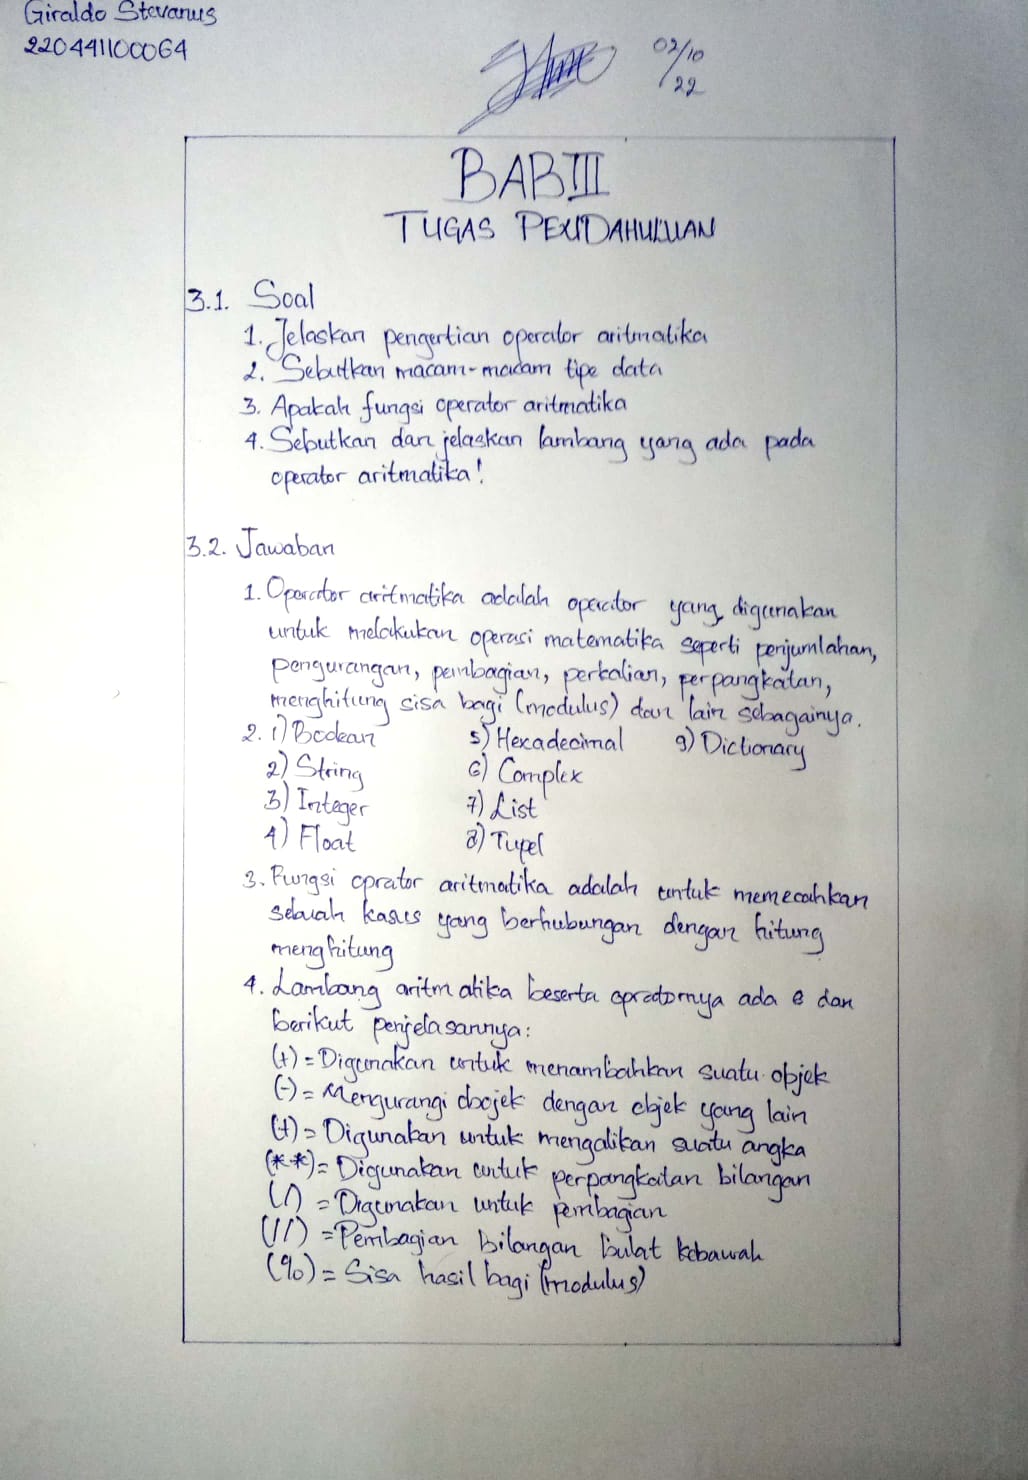 Giraldo Stevanus
220441100064
02/10
22
BAB III
TUGAS PENDAHULUAN
3.1. Soal
1. Jelaskan pengertian operator aritmatika
2. Sebutkan macam-macam tipe data
3. Apakah fungsi operator aritmatika
4. Sebutkan dan jelaskan lambang yang ada pada
operator aritmatika!
3.2. Jawaban
1. Operator aritmatika adalah operator yang digunakan
untuk melakukan operasi matematika seperti penjumlahan,
pengurangan, pembagian, perkalian, perpangkatan,
menghitung sisa bagi (modulus) dan lain sebagainya.
2. 1) Boolean 5) Hexadecimal 9) Dictionary
2) String 6) Complex
3) Integer 7) List
4) Float 8) Tupel
3. Fungsi oprator aritmatika adalah untuk memecahkan
sebuah kasus yang berhubungan dengan hitung
menghitung
4. Lambang aritmatika beserta opratornya ada 8 dan
berikut penjelasannya:
(+) = Digunakan untuk menambahkan suatu objek
(-) = Mengurangi obojek dengan objek yang lain
(*) = Digunakan untuk mengalikan suatu angka
(**) = Digunakan untuk perpangkatan bilangan
(/) = Digunakan untuk pembagian
(//) = Pembagian bilangan bulat kebawah
(%) = Sisa hasil bagi (modulus)